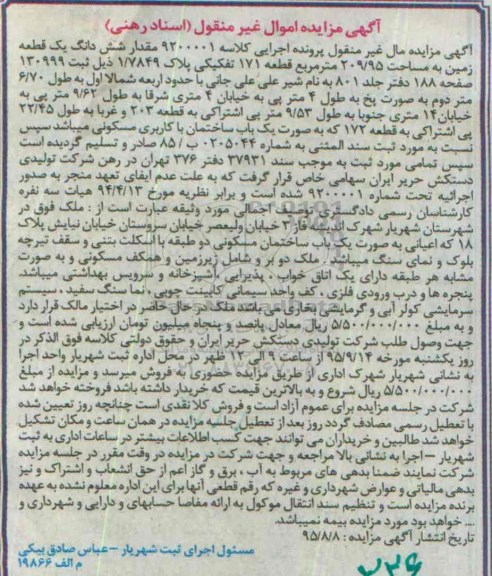 آگهی مزایده اموال غیر منقول (اسناد رهنی)
آگهی مزایده مال غیر منقول پرونده اجرایی کلاسه ۹۲۰۰۰۰۱ مقدار شش دانگ یک قطعه
زمین به مساحت ۲۰۹/۹۵ مترمربع قطعه ۱۷۱ تفکیکی پلاک ۱/۷۸۴۹ ذیل ثبت ۱۳۰۹۹۹
صفحه ۱۸۸ دفتر جلد ۸۰۱ به نام شیر علی علی جانی با حدود اربعه شمالا اول به طول ۶/۷۰
متر دوم به صورت پخ به طول ۴ متر پی به خیابان ۴ متری شرقا به طول ۹/۶۲ متر پی به
خیابان۱۴ متری جنوبا به طول ۹/۵۳ متر پی اشتراکی به قطعه ۲۰۳ و غربا به طول ۲۲/۴۵
پی اشتراکی به قطعه ۱۷۲ که به صورت یک باب ساختمان با کاربری مسکونی میباشد سپس
نسبت به مورد ثبت سند المثنی به شماره ۰۲۰۵۰۴۴ ب / ۸۵ صادر و تسلیم گردیده است
سپس تمامی مورد ثبت به موجب سند ۳۷۹۳۱ دفتر ۳۷۶ تهران در رهن شرکت تولیدی
دستکش حریر ایران سهامی خاص قرار گرفت که به علت عدم ایفای تعهد منجر به صدور
اجرائیه تحت شماره ۹۲۰۰۰۰۱ شده است و برابر نظریه مورخ ۹۴/۴/۱۳ هیات سه نفره
کارشناسان رسمی دادگستری توصیف اجمالی مورد وثیقه عبارت است از : ملک فوق در
شهرستان شهریار شهرک اندیشه فاز ۳ خیابان ولیعصر خیابان سروستان خیابان نیایش پلاک
۱۸ که اعیانی به صورت یک باب ساختمان مسکونی دو طبقه با اسکلت بتنی و سقف تیرچه
بلوک و نمای سنگ میباشد . ملک دو بر و شامل زیرزمین و همکف مسکونی و به صورت
مشابه هر طبقه دارای یک اتاق خواب . پذیرایی .آشپزخانه و سرویس بهداشتی میباشد.
پنجره ها و درب ورودی فلزی . کف واحد سیمانی کابینت چوبی . نما سنگ سفید ، سیستم
سرمایشی کولر آبی و گرمایشی بخاری می باشد ملک در حال حاضر در اختیار مالک قرار دارد
و به مبلغ ۵/۵۰۰/۰۰۰/۰۰۰ ریال معادل پانصد و پنجاه میلیون تومان ارزیابی شده است و
جهت وصول طلب شرکت تولیدی دستکش حریر ایران و حقوق دولتی کلاسه فوق الذکر در
روز یکشنبه مورخه ۹۵/۹/۱۴ از ساعت ۹ الی ۱۲ ظهر در محل اداره ثبت شهریار واحد اجرا
به نشانی شهریار شهرک اداری از طریق مزایده حضوری به فروش میرسد و مزایده از مبلغ
۵/۵۰۰/۰۰۰/۰۰۰ ریال شروع و به بالاترین قیمت که خریدار داشته باشد فروخته خواهد شد
شرکت در جلسه مزایده برای عموم آزاد است و فروش کلا نقدی است چنانچه روز تعیین شده
با تعطیل رسمی مصادف گردد روز بعد از تعطیل جلسه مزایده در همان ساعت و مکان تشکیل
خواهد شد طالبین و خریداران می توانند جهت کسب اطلاعات بیشتر در ساعات اداری به ثبت
شهریار – اجرا به نشانی بالا مراجعه و جهت شرکت در مزایده در وقت مقرر در جلسه مزایده
شرکت نمایند ضمنا بدهی های مربوط به آب ، برق و گاز اعم از حق انشعاب و اشتراک و نیز
بدهی مالیاتی و عوارض شهرداری و غیره که رقم قطعی آنها برای این اداره معلوم نشده به عهده
برنده مزایده است و تنظیم سند انتقال موکول به ارائه مفاصا حسابهای و دارایی و شهرداری و
.... خواهد بود مورد مزایده بیمه نمیباشد.
تاریخ انتشار آگهی مزایده : ۹۵/۸/۸
مسئول اجرای ثبت شهریار –عباس صادق بیکی
م الف ۱۹۸۶۶
۲۳۶